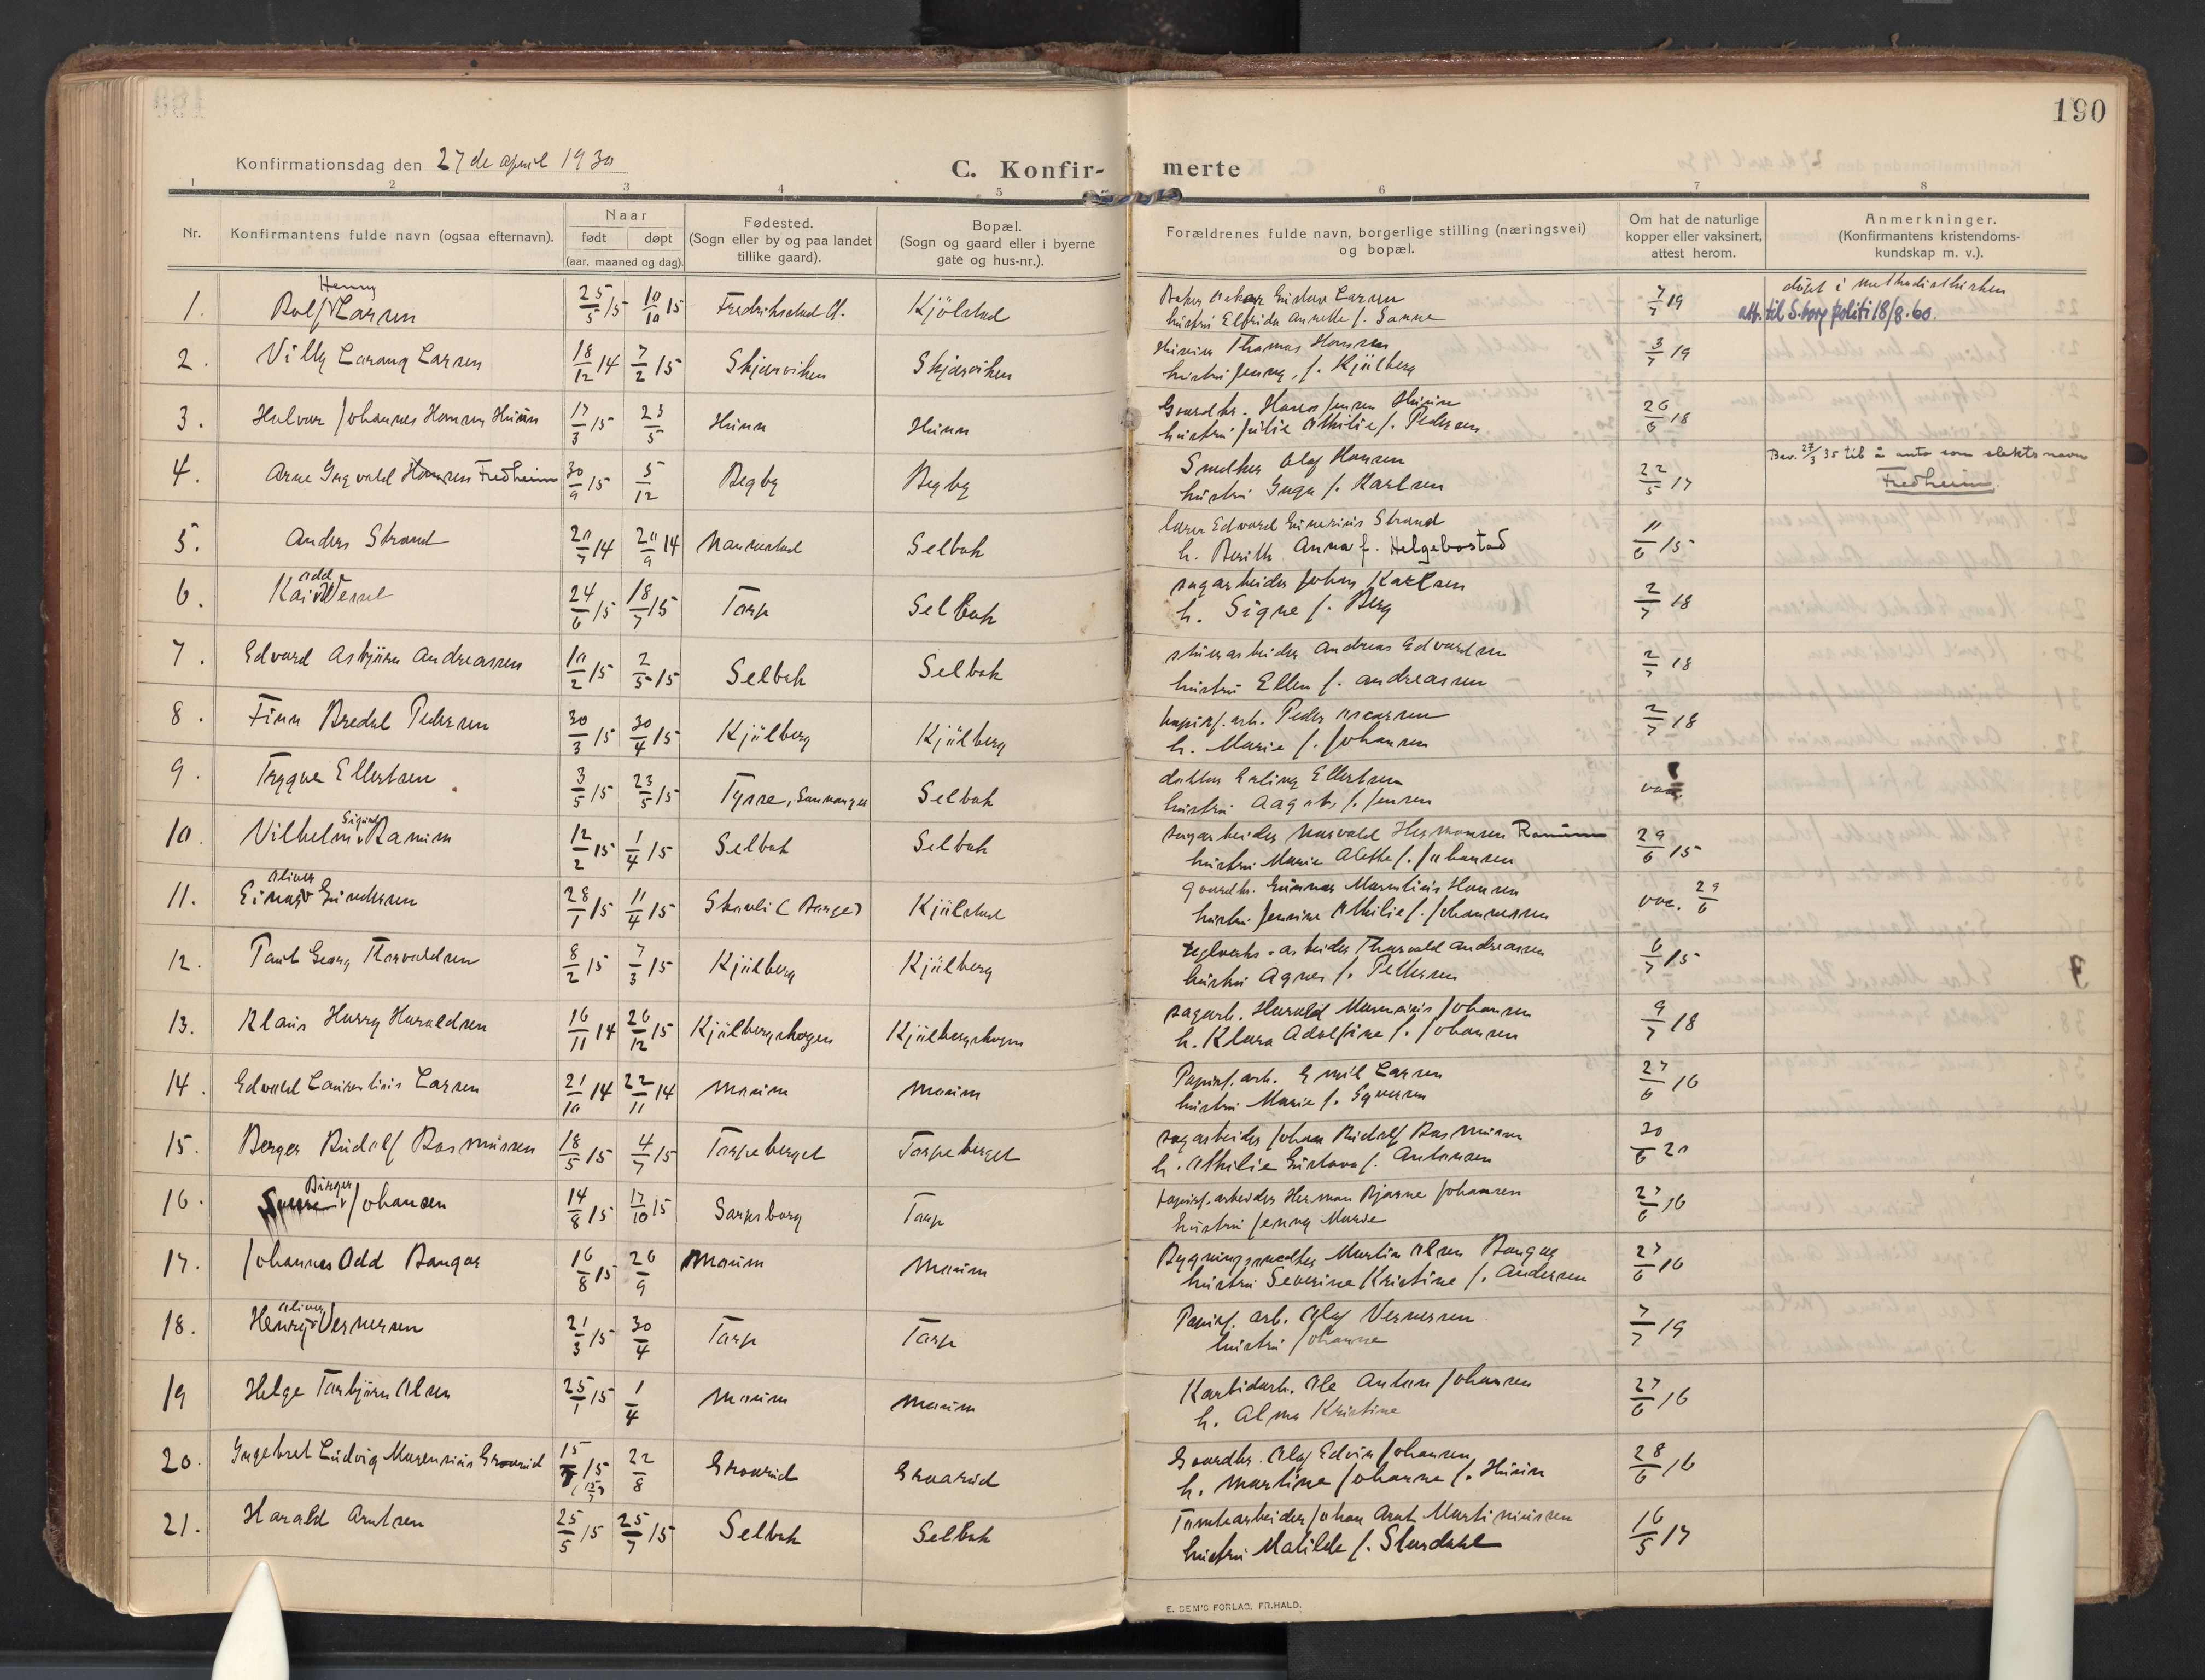 190
Konfirmationsdag den 27 de april 1930
C. Konfir-
merte
1 2 3 4 5 6 7 8
Nr.
Konfirmantens fulde navn (ogsaa efternavn).
Naar
født døpt
(aar, maaned og dag).
Fødested.
(Sogn eller by og paa landet
tillike gaard).
Bopæl.
(Sogn og gaard eller i byerne
gate og hus-nr.).
Forældrenes fulde navn, borgerlige stilling (næringsvei)
og bopæl.
Om hat de naturlige
kopper eller vaksinert,
attest herom.
Anmerkninger.
(Konfirmantens kristendoms-
kundskap m. v.).
Henny
1. Rolf Larsen 25/5 15 10/10 15 Fredrikstad Kjölstad
Gustav Larsen
hustru Elfrida Annette f. Sanne
7/7 19
döpt i methodistkirken
att. til S.borg politi 18/8-60.
2. Villy Larsen 18/12 14 7/2 15 Skjærviken Skjærviken
Thomas Hansen
hustru Jenny, f. Kjölberg
3/7 19
3. Halvor Johannes Hansen Huun 17/3 15 23/5 Hunn Hunn
Gaardbr. Hans Jensen Hunn
hustru Julie Othilie f. Pedersen
26/6 18
4. Arne Ingvald Hansen Fredheim 30/9 15 5/12 Begby Begby
Snedker Olaf Hansen
hustru Inga f. Karlsen
22/5 17
Bev. 27/3 35 til å anta som slektsnavn
Fredheim.
5. Anders Strand 20/7 14 20/9 14 Nannestad Selbak
lærer Edvard Strand
h. Berith Anna f. Helgebostad
11/6 15
Odd
6. Kai Wessel 24/6 15 18/7 15 Torp Selbak
sagarbeider Johan Karlsen
h. Signe f. Berg
2/7 18
7. Edvard Asbjörn Andreassen 10/2 15 2/5 15 Selbak Selbak
Andreas Edvardsen
hustru Ellen f. Andreassen
2/7 18
8. Finn Bredal Pedersen 30/3 15 30/4 15 Kjölberg Kjölberg
papirf. arb. Peder
h. Marie f. Johansen
2/7 18
9. Trygve Ellertsen 3/5 15 23/5 15 Tysse, Samnanger Selbak
doktor Erling Ellertsen
hustru Aagot, f. Jensen
vac.
Sigurd
10. Vilhelm Ramm 12/2 15 1/4 15 Selbak Selbak
sagarbeider Hermansen
hustru Marie Alette f. Johansen
29/6 15
Oliver
11. Einar Gundersen 28/1 15 11/4 15 Skauli (Borge) Kjölstad
gaardb. Gunnar Hansen
hustru Jensine Othilie f. Johannessen
vac. 29/6
12. Paul Georg Thorvaldsen 8/2 15 7/3 15 Kjölberg Kjölberg
teglverks-arbeider Thorvald Andreassen
hustru Agnes f. Pettersen
6/7 15
13. Klaus Harry Haraldsen 16/11 14 26/12 15 Kjölbergskogen Kjölbergskogen
sagarb. Harald Johansen
h. Klara Adolfine f. Johansen
9/7 18
14. Edvald Laurentius Larsen 21/10 14 22/11 14 Moum Moum
Papirf. arb. Emil Larsen
hustru Marie f. Syversen
27/6 16
15. Berger Rudolf Rasmussen 18/5 15 4/7 15 Torpeberget Torpeberget
sagarbeider Johan Rudolf Rasmussen
h. Othilie Gustava f. Antonsen
30/6 20
Birger
16. Sverre Johansen 14/8 15 17/10 15 Sarpsborg Torp
papirf. arbeider Herman Bjarne Johansen
hustru Jenny Marie
27/6 16
17. Johannes Odd Bangor 16/8 15 26/9 Moum Moum
Bygningssnedker Martin Olsen Bangor
hustru Severine Kristine f. Andersen
27/6 16
Oliver
18. Henry Vernersen 21/3 15 30/4 Torp Torp
Papirf. arb. Olaf Vernersen
hustru Johanne
7/7 19
19 Helge Torbjörn Olsen 25/1 15 1/4 Moum Moum
Karbidarb. Ole Anton Johansen
h. Alma Kristine
27/6 16
20. Ingebret Ludvig Marensius Enersrud 15/7 15 (15/7) 22/8
Gaardbr. Olaf Edvin Johansen
h. Martine Johanne f. Hunn
28/6 16
21. Harald Arntsen 25/5 15 25/7 15 Selbak Selbak
Tomtearbeider Johan Arnt Martiniussen
hustru Matilde f. Stordahl
16/5 17
E. SEM'S FORLAG, FR.HALD.